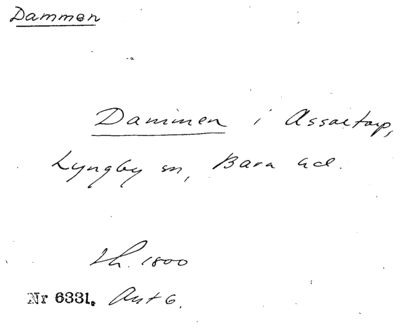 Dammen
Dammen i Assartorp,
Lyngby sn, Bara hd.
1800
Nr 6331. Ant 6.